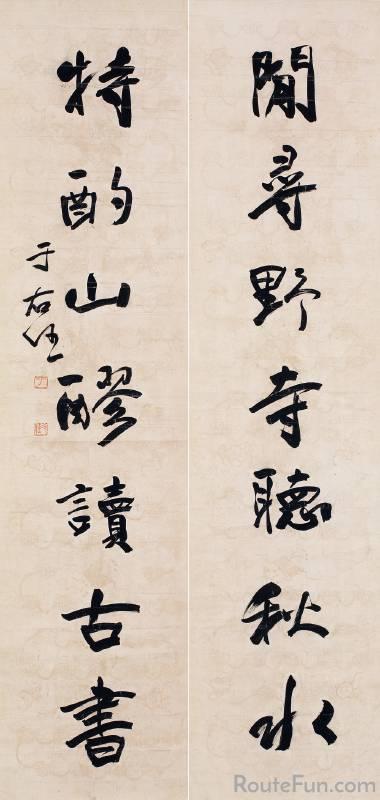 閒尋野寺聽秋水
特酌山醪讀古書
于右任
RouteFun.com